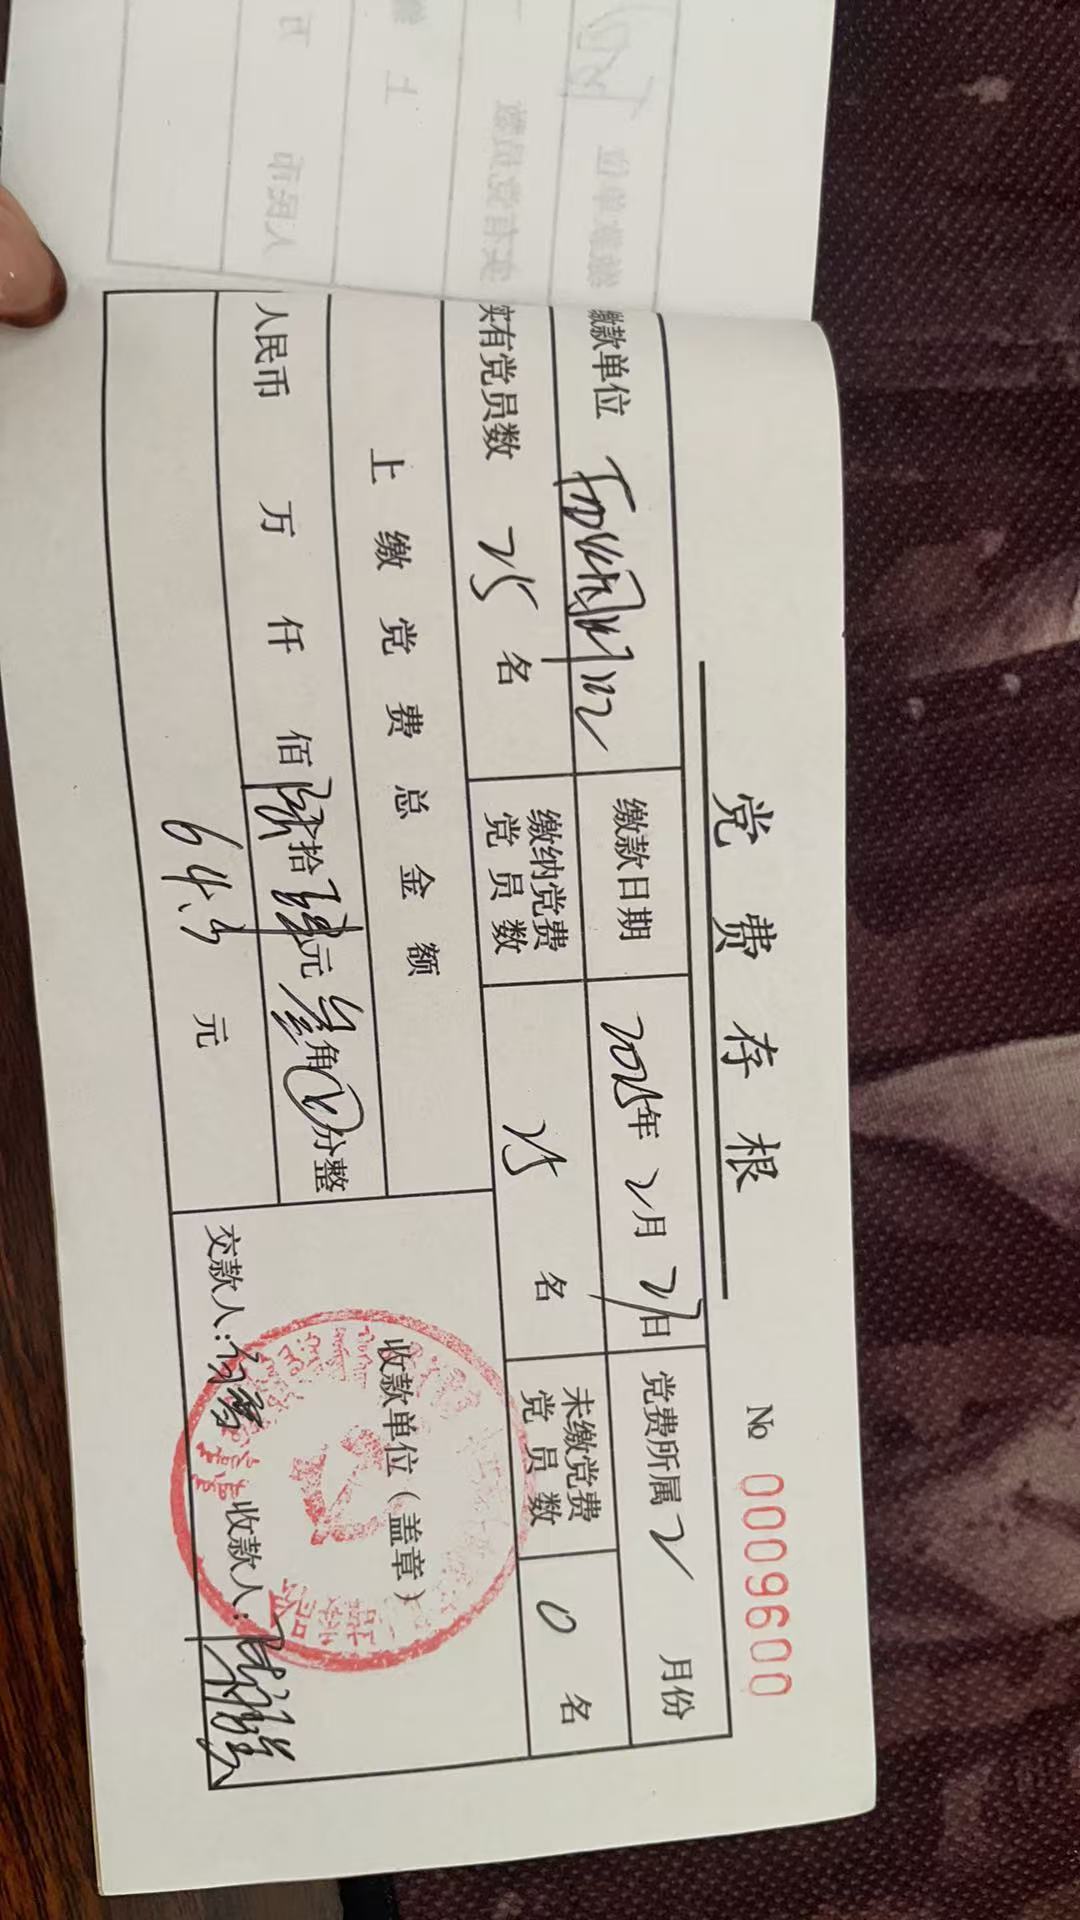 党费存根
№ 0009600
缴款单位 缴款日期 2025年 2月 21日 党费所属 2 月份
实有党员数 25 名 缴纳党费党员数 25 名 未缴党费党员数 0 名
上缴党费总金额
人民币 万 仟 佰 陆拾 肆元 叁角 0分整
64.3 元
收款单位（盖章）
交款人： 收款人：